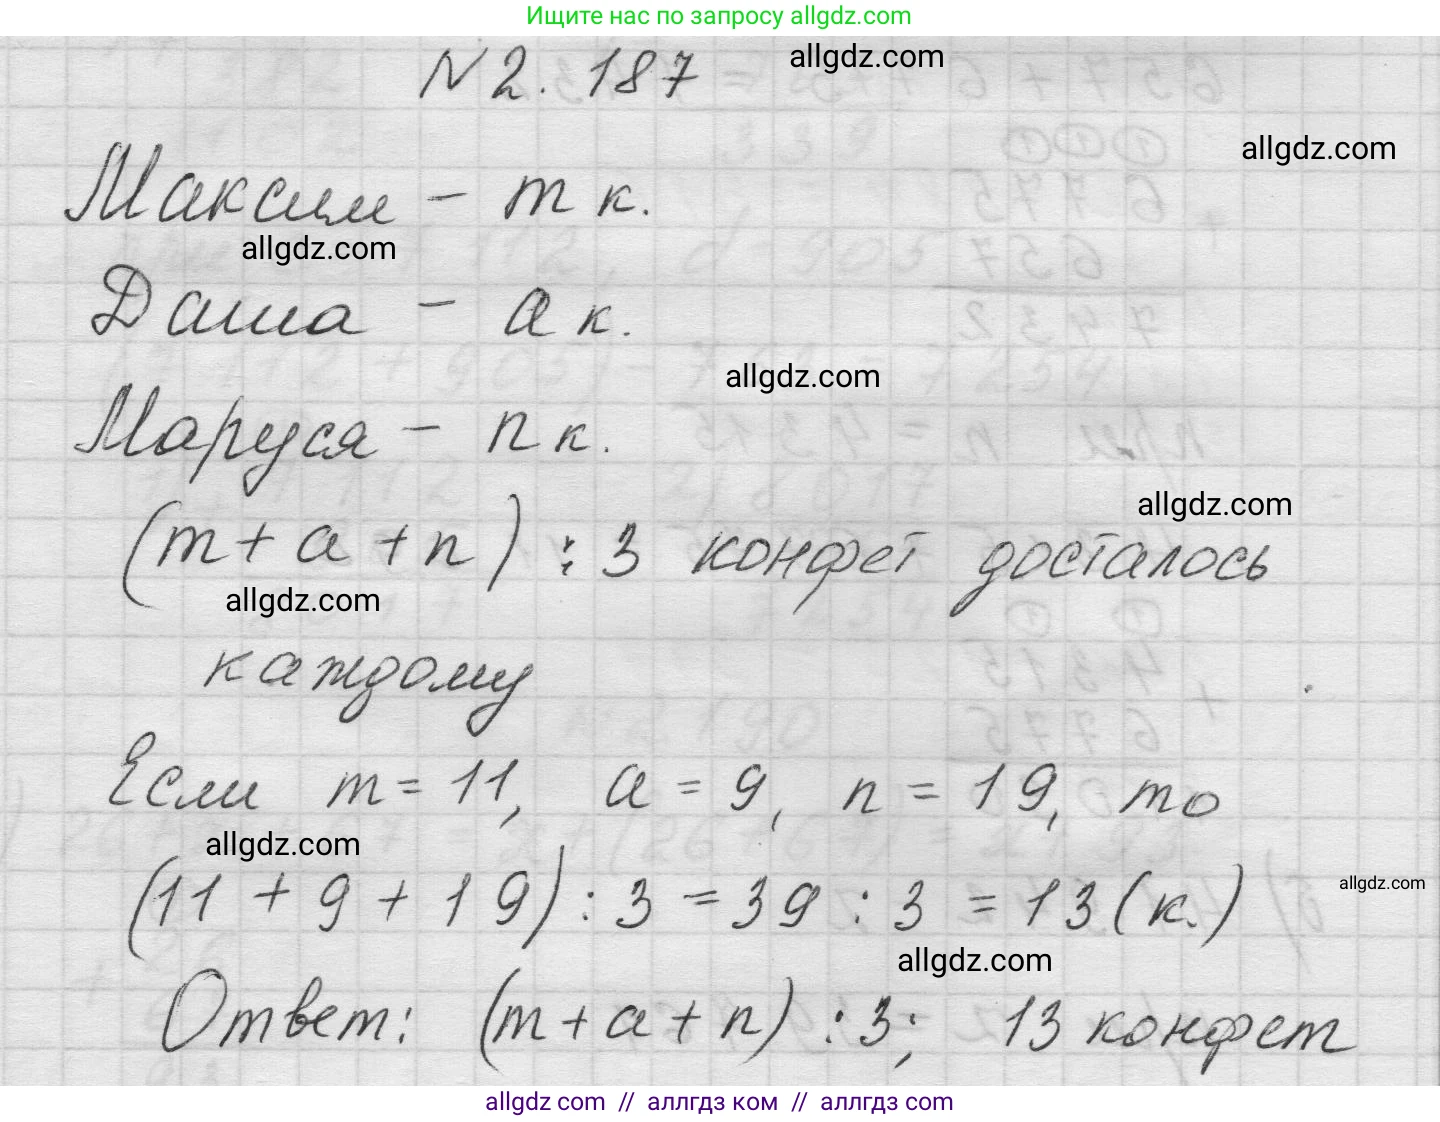 Ищите нас по запросу allgdz.com
N 2.187
allgdz.com
allgdz.com
Максим - m к.
allgdz.com
Даша - a к.
allgdz.com
Маруся - n к.
allgdz.com
(m + a + n) : 3 конфет досталось
allgdz.com
каждому
Если m = 11, a = 9, n = 19, то
allgdz.com
allgdz.com
(11 + 9 + 19) : 3 = 39 : 3 = 13 (к.)
allgdz.com
Ответ: (m + a + n) : 3; 13 конфет
allgdz com // аллгдз ком // аллгдз com